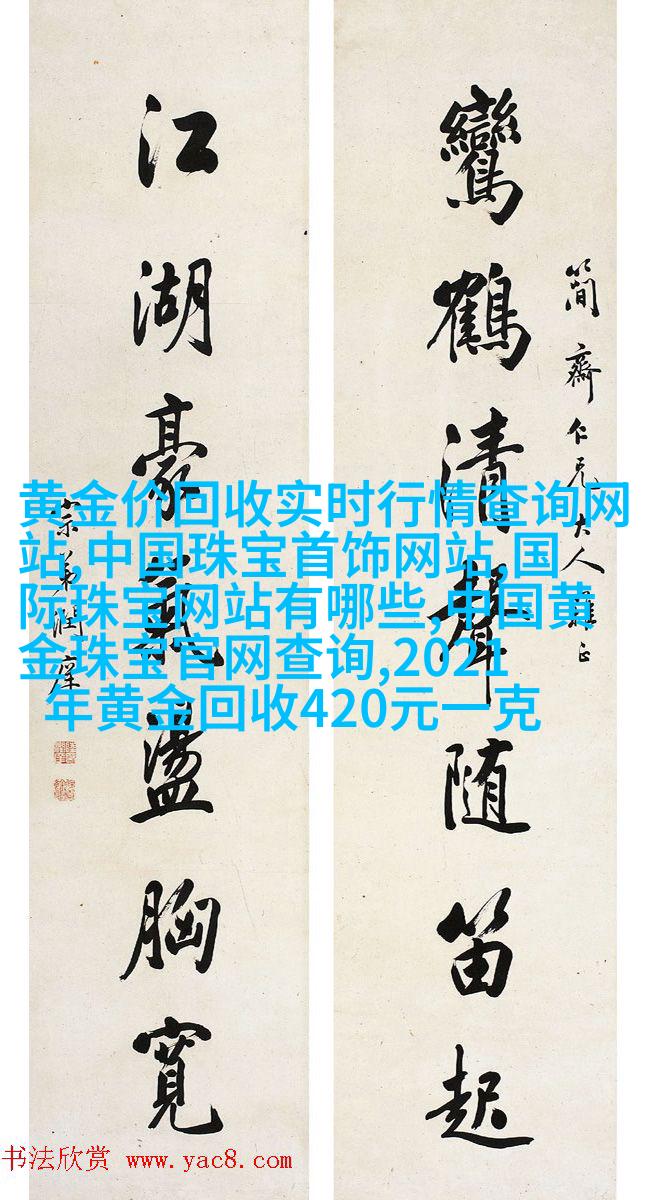 鸞鶴清聲随笛起
簡齋仁兄大人雅正
江湖豪氣盪胸寬
宗弟潤庠
黄金价回收实时行情查询网
站,中国珠宝首饰网站,国
际珠宝网站有哪些,中国黄
金珠宝官网查询,2021
年黄金回收420元一克
书法欣赏 www.yac8.com